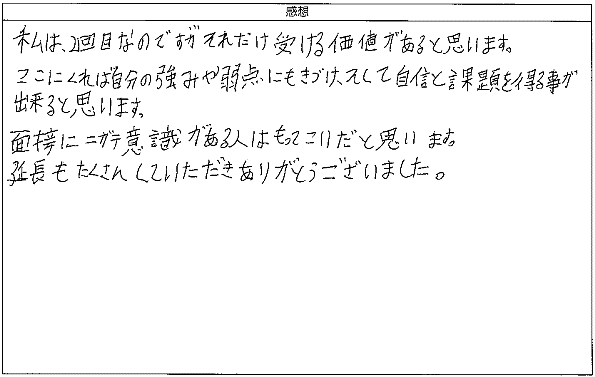 感想
私は、2回目なのですがそれだけ受ける価値があると思います。
ここにくれば自分の強みや弱点にもきづけ、そして自信と課題を得る事が
出来ると思います。
面接にニガテ意識がある人はもってこいだと思います。
延長もたくさんしていただきありがとうございました。